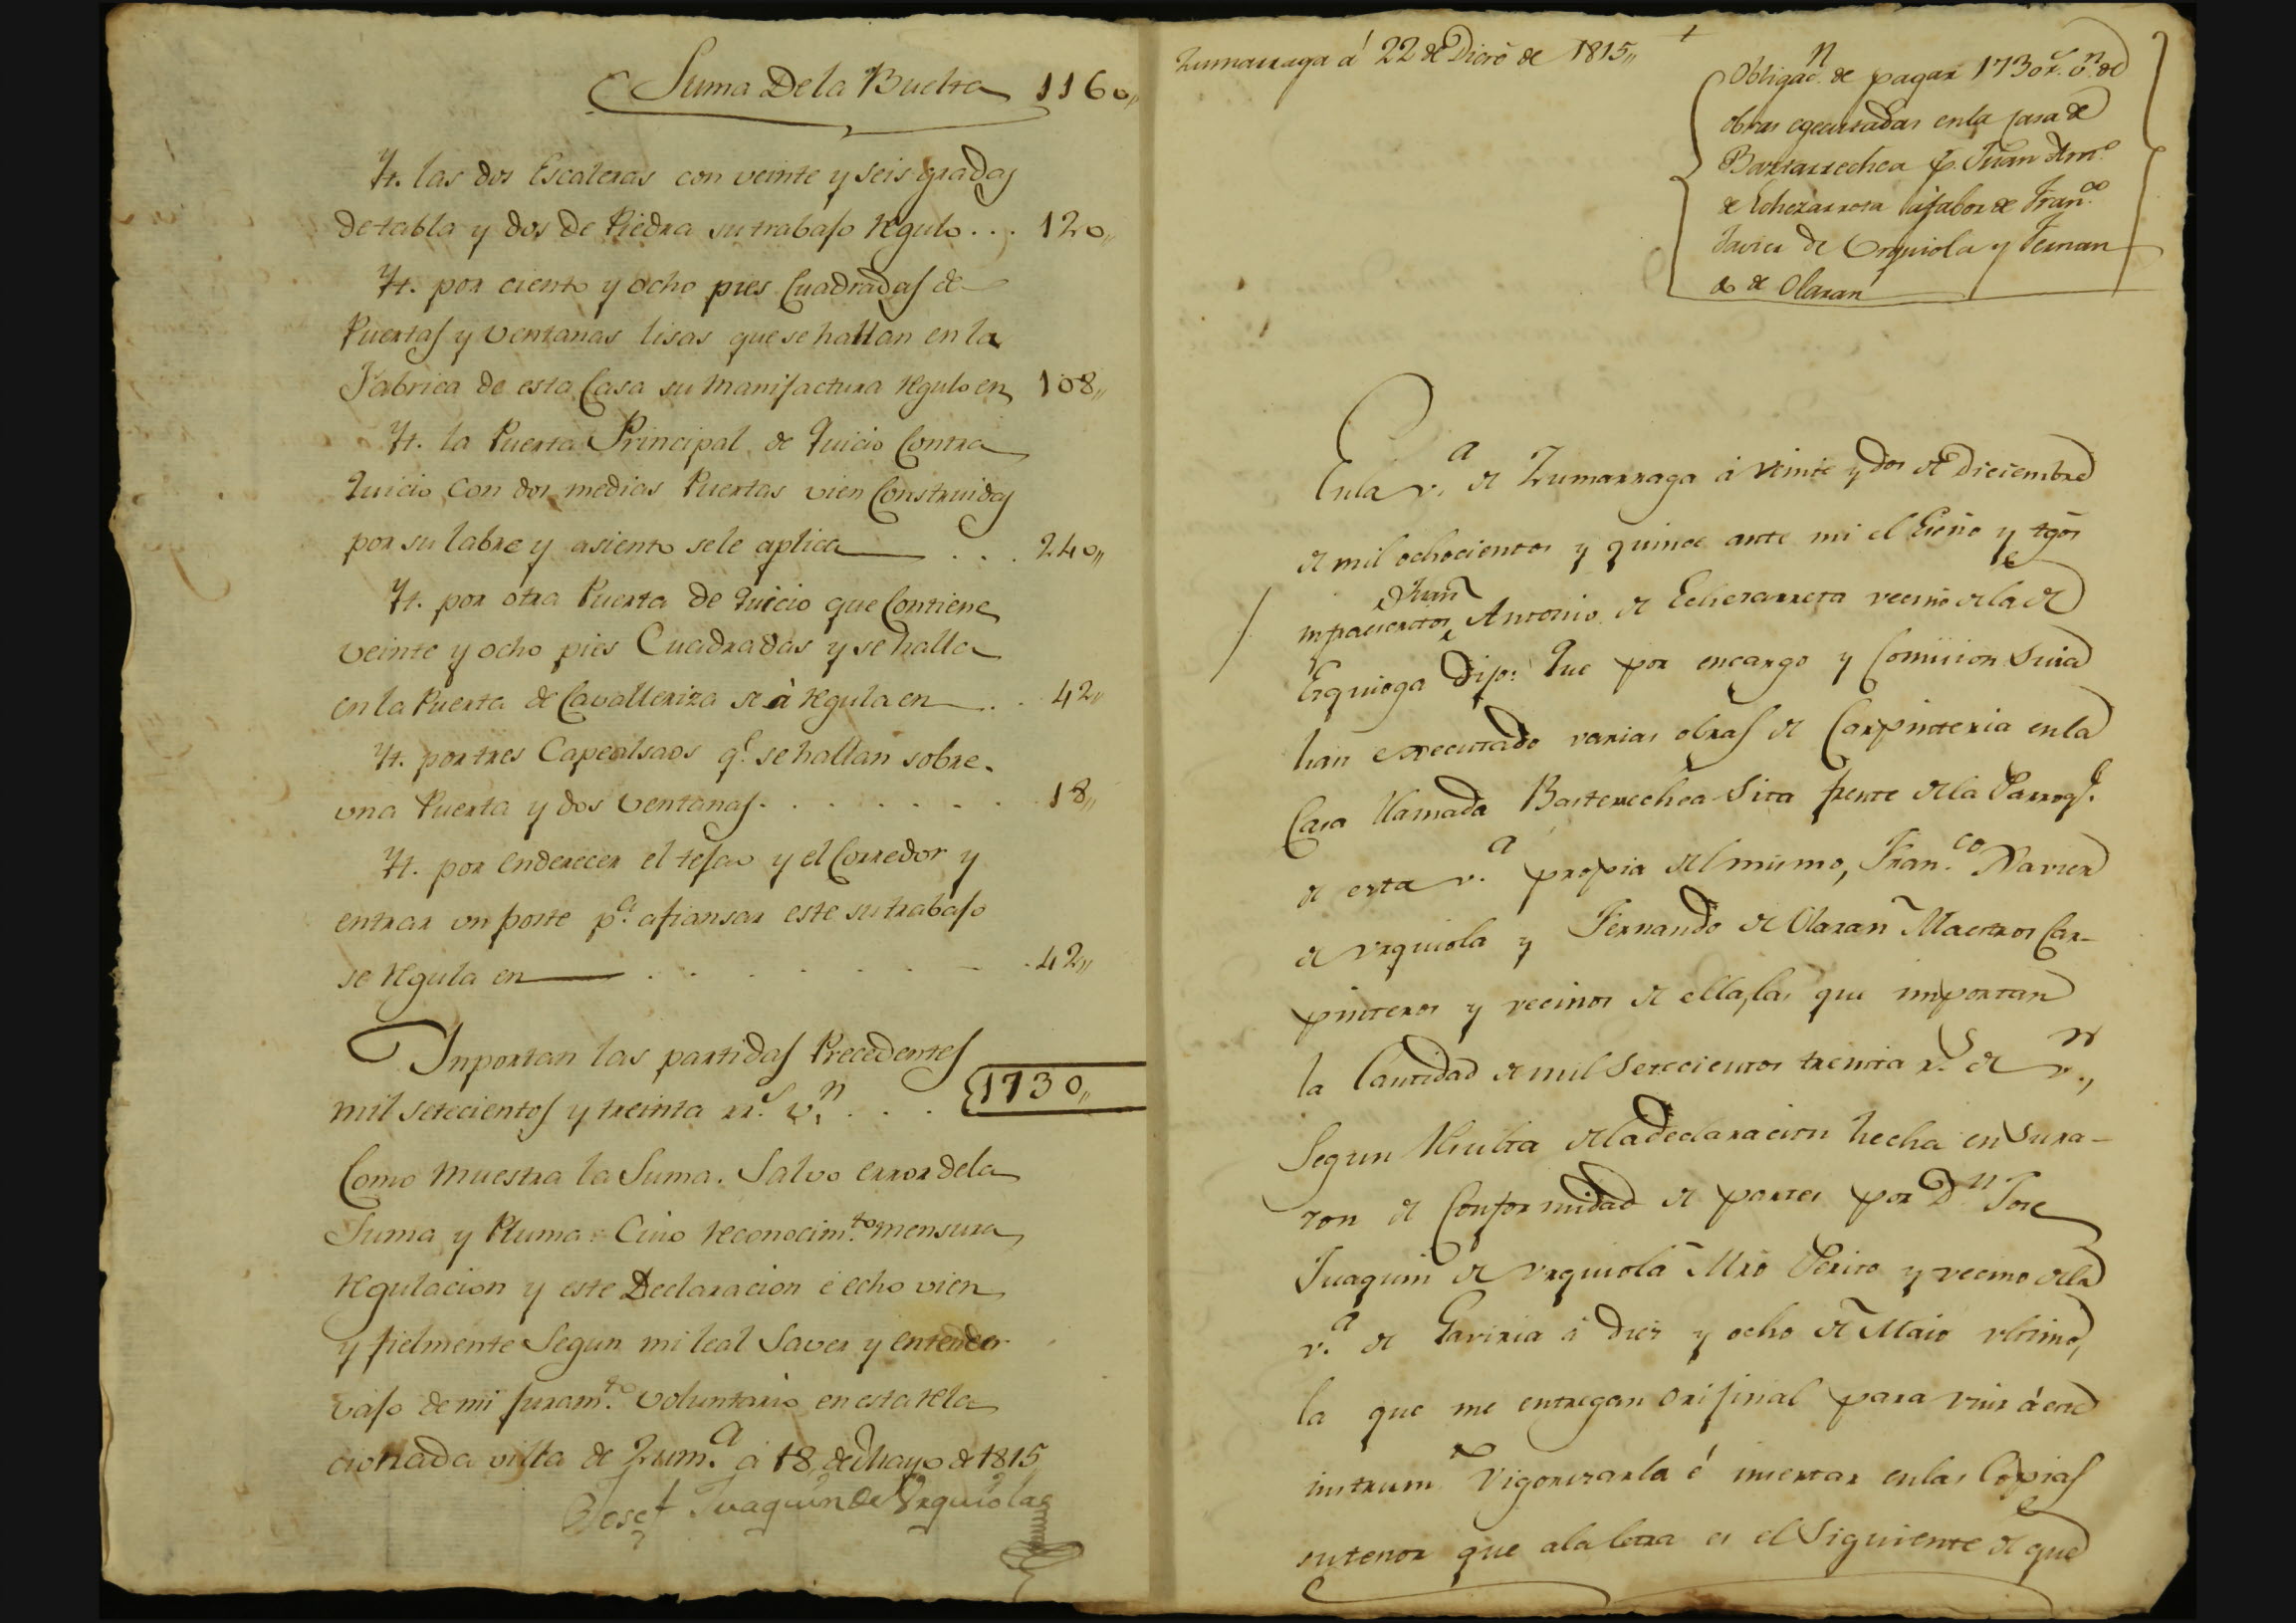 Suma De la Buelta 1160,,
Yt. las dos Escaleras con veinte y seis gradas
de tabla y dos de Piedra su trabajo regulo . . . 120,,
Yt. por ciento y ocho pies Cuadradas de
Puertas y ventanas lisas que se hallan en la
Fabrica de esta Casa su manifactura regulo en 108,,
Yt. la Puerta Principal de Quicio Contra
Quicio con dos medias Puertas vien Construidas
por su labre y asiento se le aplica . . . 240,,
Yt. por otra Puerta de Quicio que Contiene
veinte y ocho pies Cuadradas y se halla
en la Puerta de Cavalleriza se à regula en . . 42,,
Yt. por tres Capealsaos q.e se hallan sobre
una Puerta y dos ventanas . . . . . . . 18,,
Yt. por enderecer el tejao y el Corredor y
entrar un poste p.a afiansar este su trabajo
se regula en . . . . . . 42,,
Inportan las partidas Precedentes
mil setecientos y treinta rr.s v.n . . . 1730,,
Como muestra la Suma. Salvo error de la
Suma y Pluma. Cuio reconocim.to mensura
regulacion y este Declaracion é echo vien
y fielmente Segun mi leal Saver y entender
vajo de mi juram.to voluntario en esta rela
cionada villa de Zum.a a 18 de Mayo de 1815
Josef Juaquin de Urquiola
Zumarraga á 22 de Dicrẽ de 1815,,
Obligac.n de pagar 1730 r.s v.n de
obras egecutadas en la casa de
Bastarrechea p. Juan Ant.o
de Echezarreta á fabor de Fran.co
Javier de Urquiola y Fernan
do de Olaran
En la v.a de Zumarraga á veinte y dos de Diciembre
de mil ochocientos y quince ante mi el Esño y tgõs
infraescritos, Juan Antonio de Echezarreta vecino de la de
Ezquioga dijo: Que por encargo y Comision suia
han executado varias obras de Carpinteria en la
Casa llamada Basterrechea sita frente de la Parroq.l
de esta v.a propia del mismo, Fran.co Xavier
de Urquiola y Fernando de Olaran Maestros Car-
pinteros y vecinos de ella, las que importan
la Cantidad de mil setecientos treinta r.s de v.n,
Segun resulta de la declaracion hecha en su ra-
zon de Conformidad de partes por D.n Jose
Juaquin de Urquiola Mrõ Perito y vecino de la
v.a de Gaviria á diez y ocho de Maio ultimo,
la que me entregan orijinal para unir á este
instrum.to vigorizarla é insertar en las Copias
su tenor que a la letra es el Siguiente de que